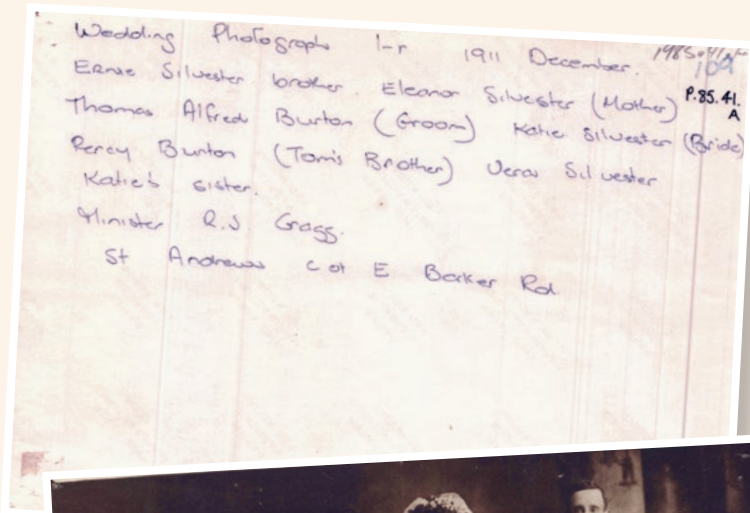 Wedding Photograph l-r 1911 December.
109
Ernie Silvester brother. Eleanor Silvester (Mother)
P.85.41.
A
Thomas Alfred Burton (Groom) Katie Silvester (Bride)
Percy Burton (Tom's Brother) Vera Silvester
Katie's sister.
Minister R.J Gragg.
St Andrews C of E Barker Rd